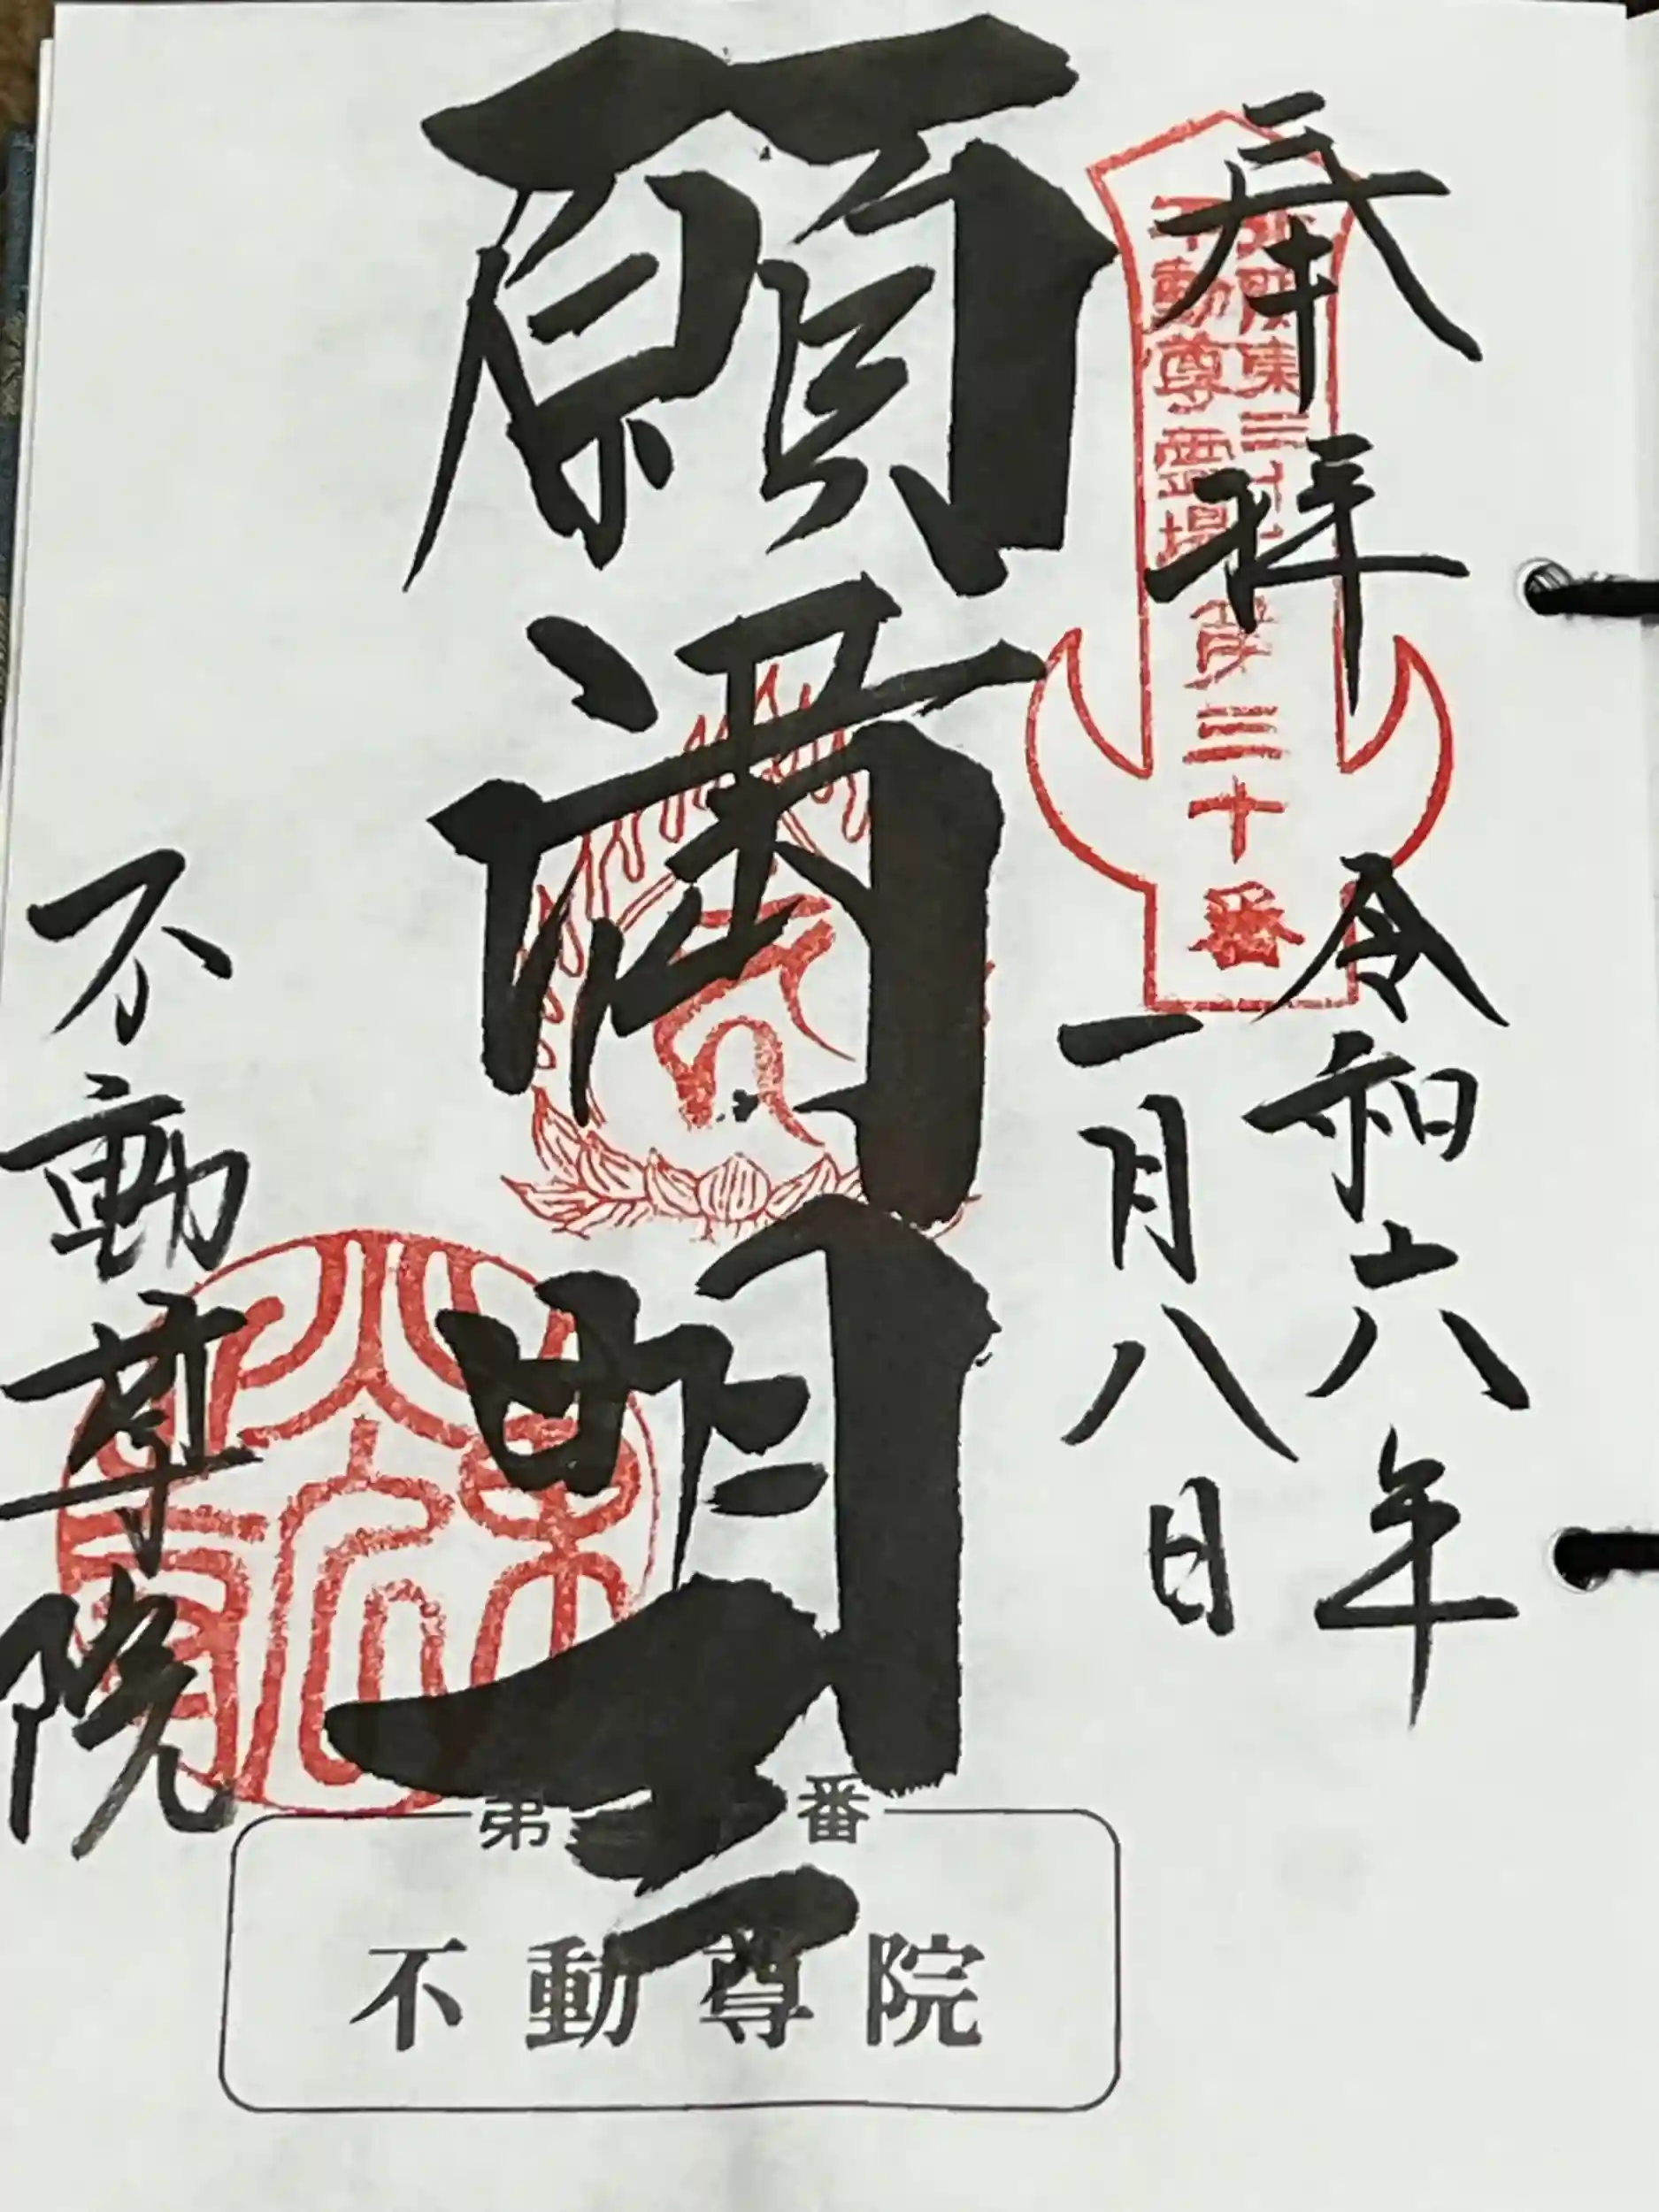 奉拝
令和六年
一月八日
北関東三十六
不動尊霊場
第三十番
願満明王
不動尊院
第 番
不動尊院